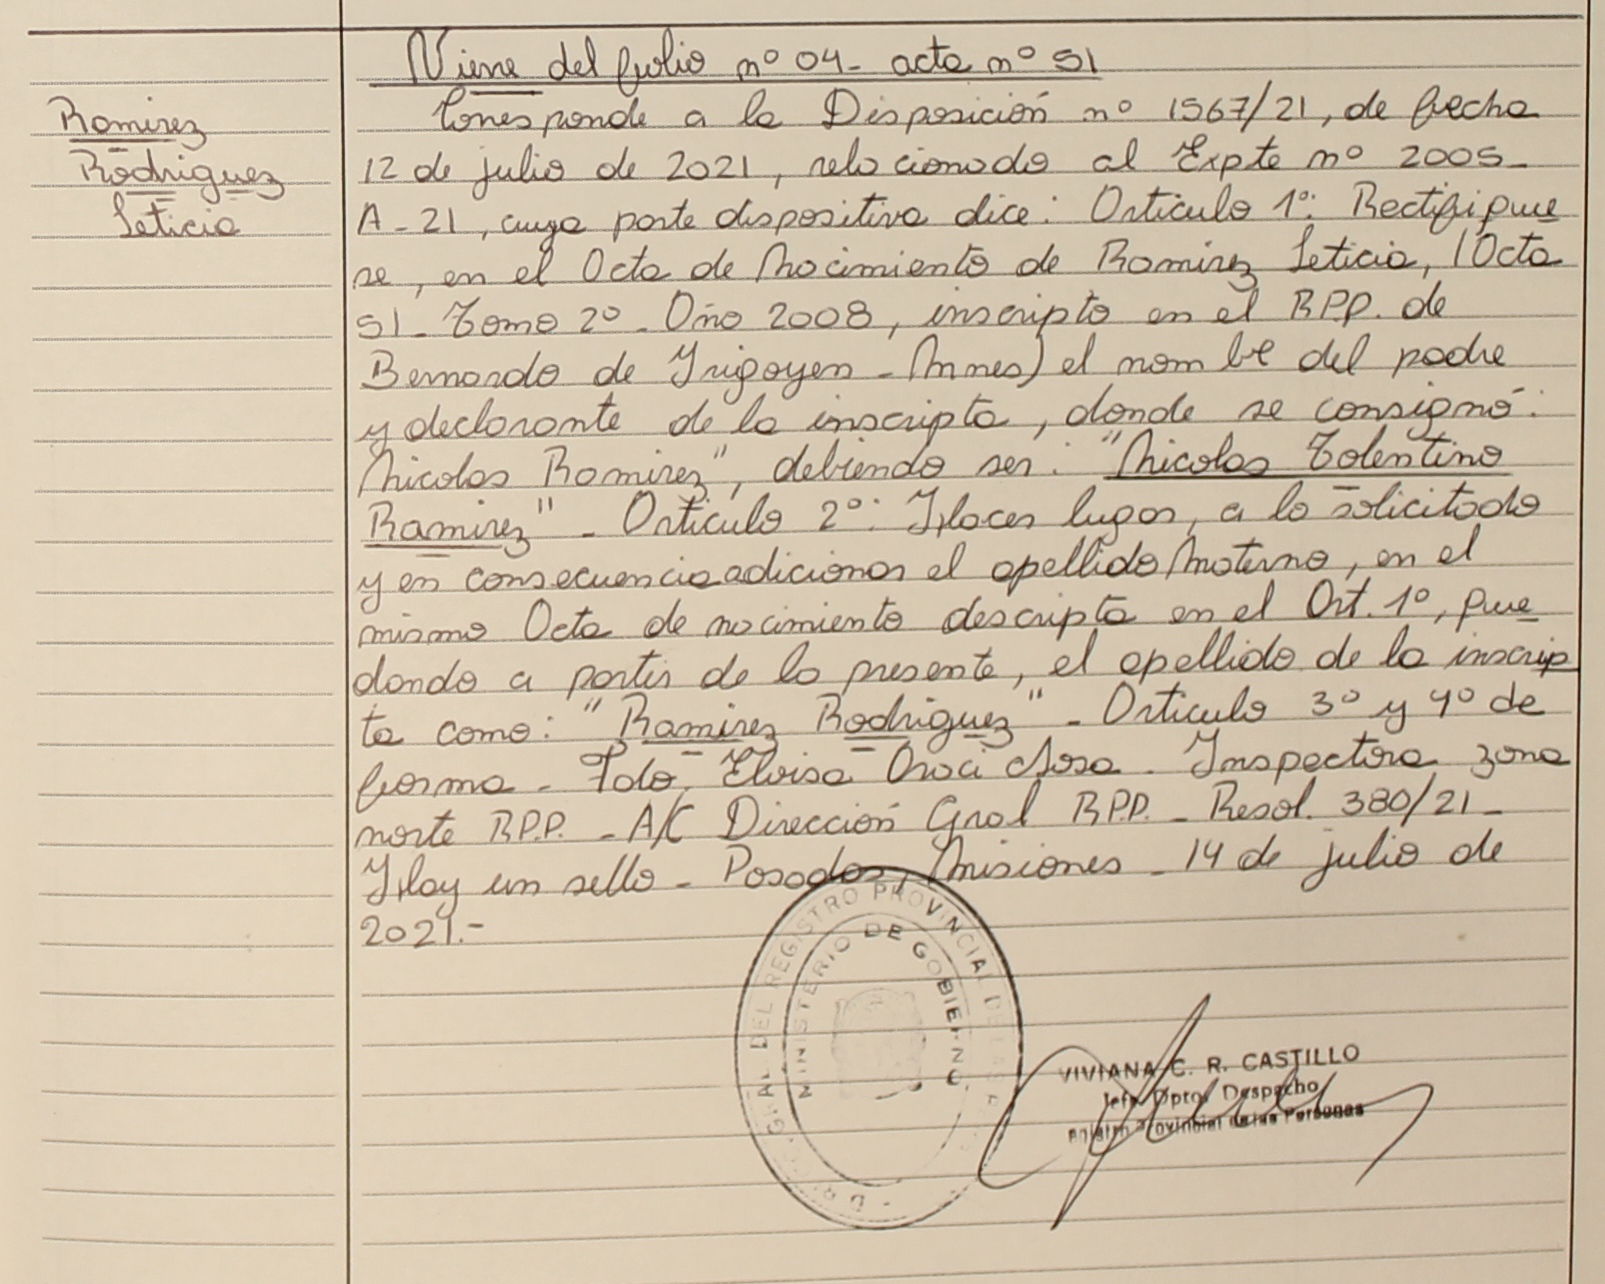 Viene del folio nº 04- acta nº 51
Ramirez
Rodriguez
Leticia
Corresponde a la Disposición nº 1567/21, de fecha
12 de julio de 2021, relacionado al Expte nº 2005-
A-21, cuya parte dispositiva dice: Artículo 1º: Rectifique
se, en el Acta de Nacimiento de Ramirez Leticia, (Acta
51- Tomo 2º- Año 2008, inscripta en el R.P.P. de
Bernardo de Irigoyen - Mnes) el nombre del padre
y declarante de la inscripta, donde se consignó:
Nicolas Ramirez", debiendo ser: "Nicolas Tolentino
Ramirez" - Artículo 2º: Hacer lugar, a lo solicitado
y en consecuencia adicionar el apellido Materno, en el
mismo Acta de nacimiento descripta en el Art. 1º, que
dando a partir de la presente, el apellido de la inscrip
ta como: "Ramirez Rodriguez" - Artículo 3º y 4º de
forma - Fdo. Elvisa Sosa - Inspectora zona
norte R.P.P. - A/C Dirección Gral R.P.P. - Resol. 380/21-
Hay un sello - Posadas, Misiones - 14 de julio de
2021.-
GRAL DEL REGISTRO PROVINCIAL DE LAS
MINISTERIO DE GOBIERNO
VIVIANA C. R. CASTILLO
Jefe Dpto. Despacho
Registro Provincial de las Personas